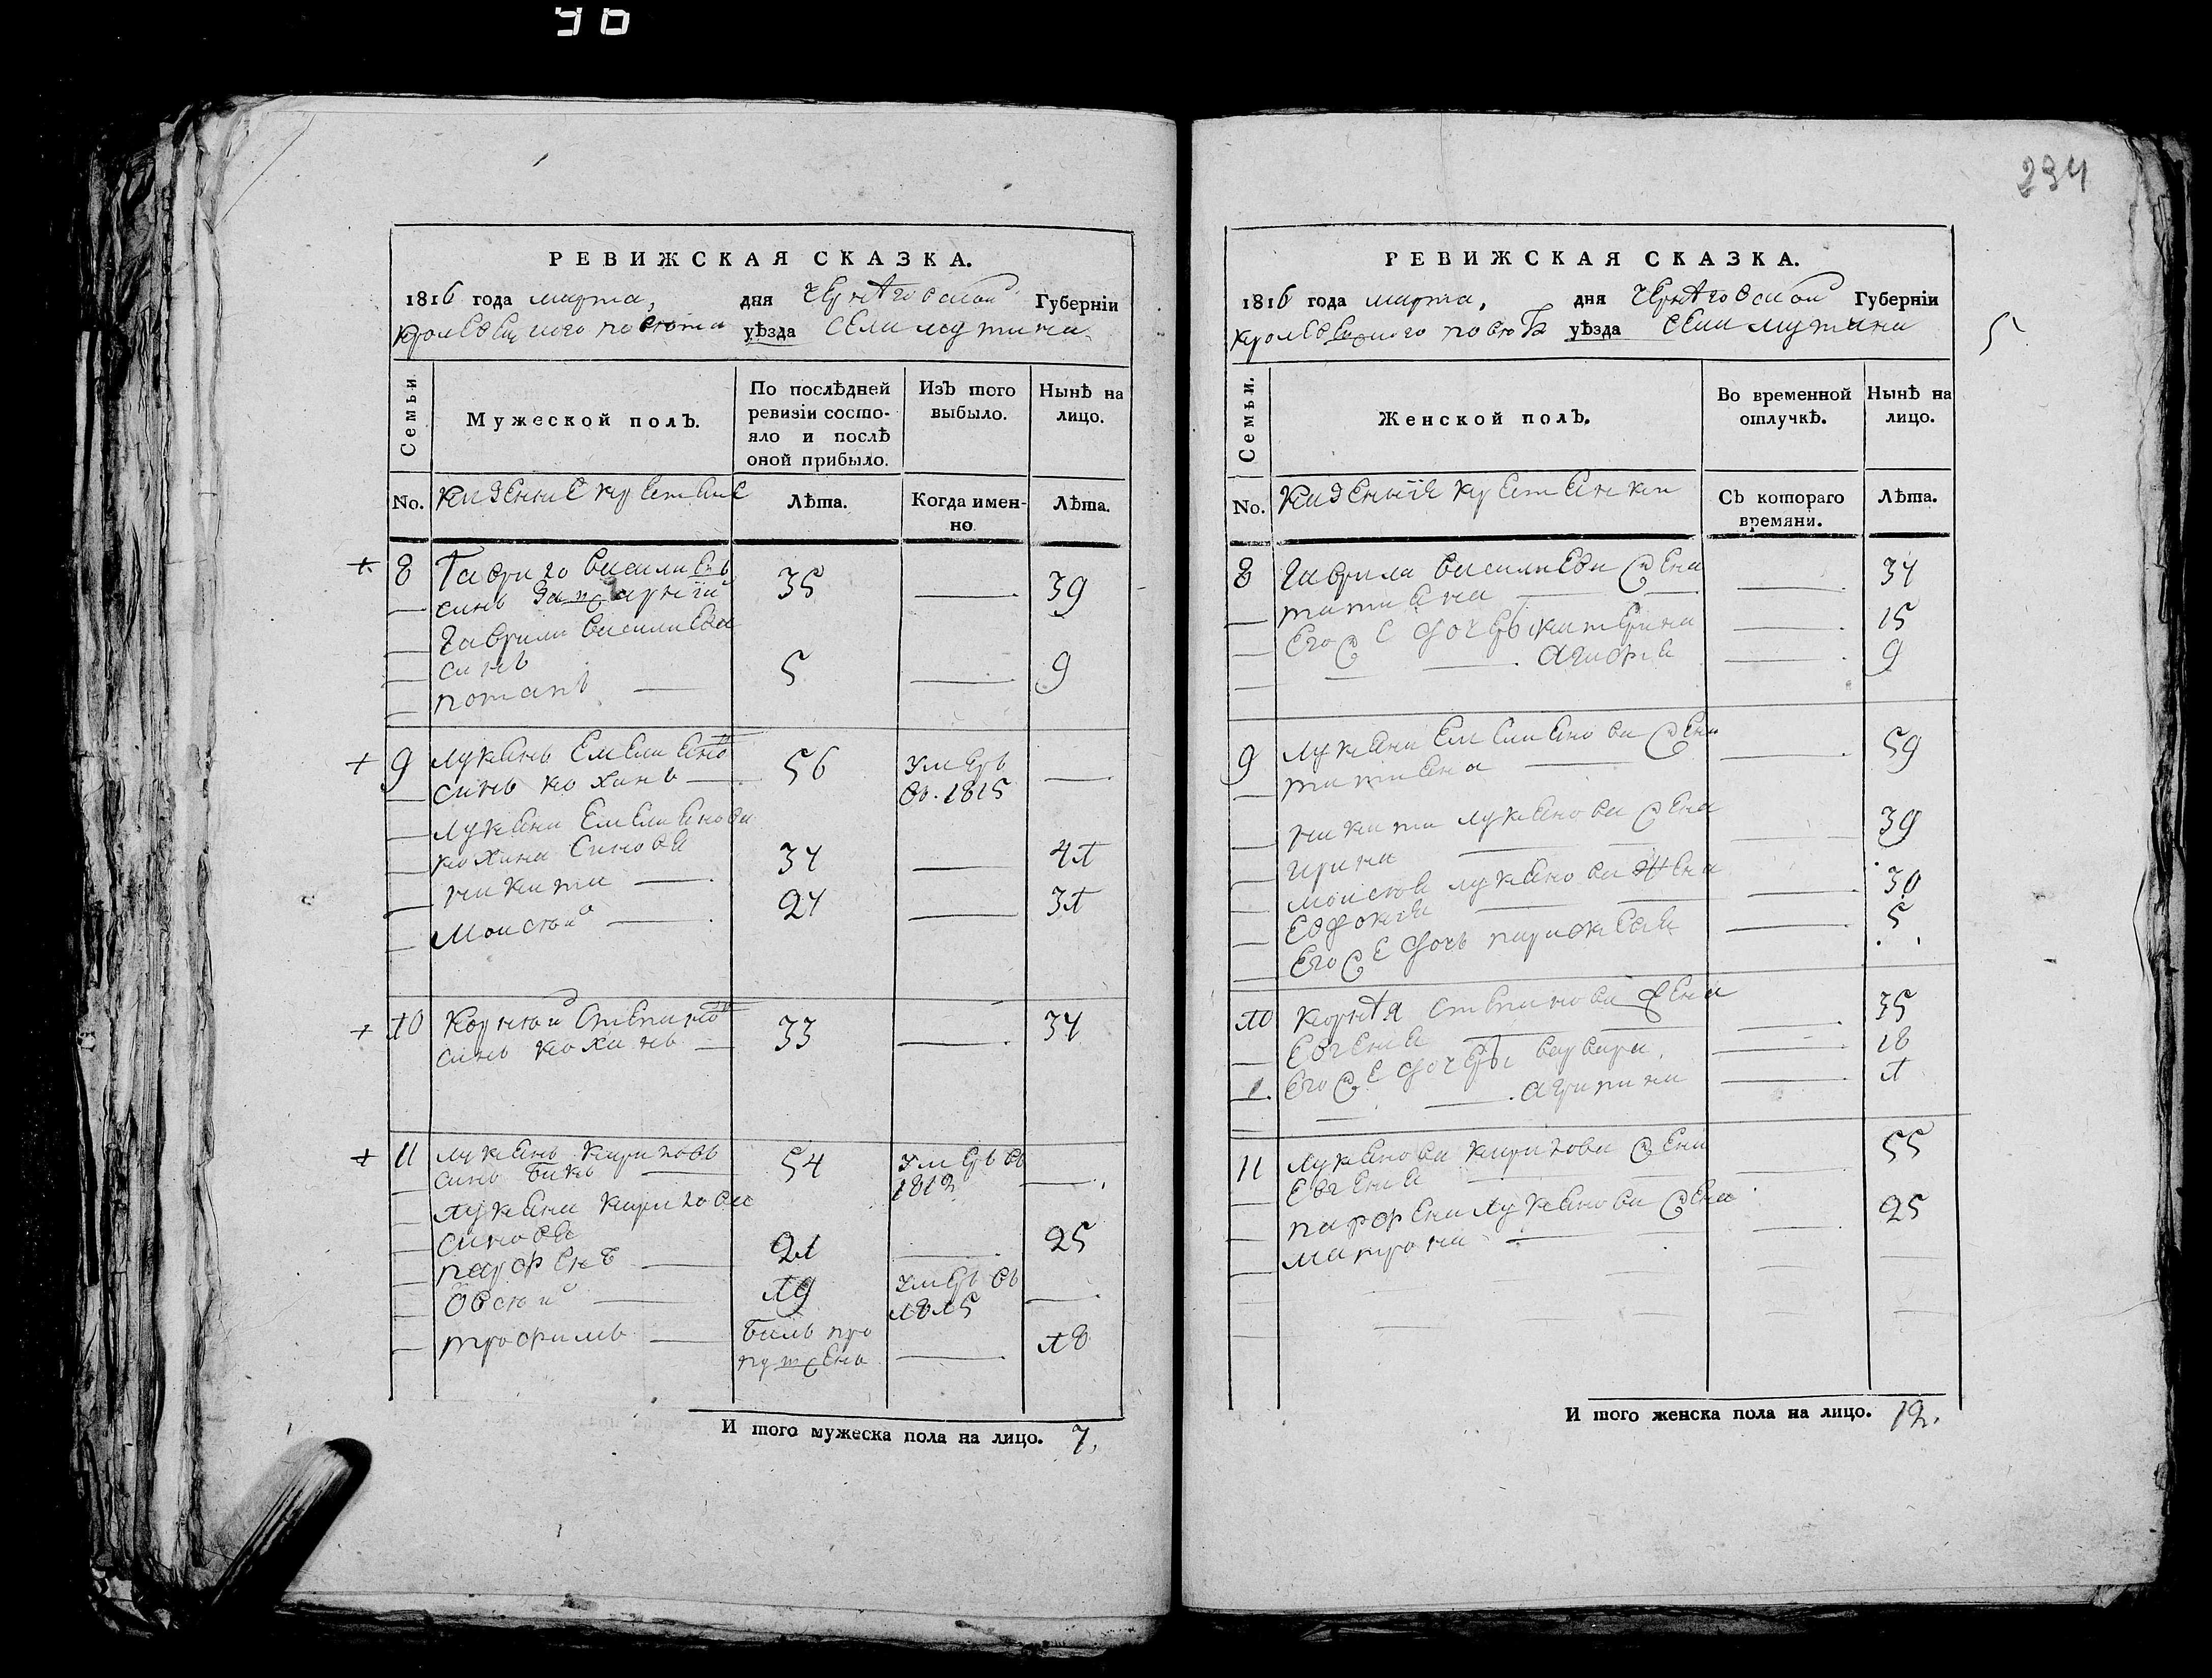 96
РЕВИЖСКАЯ СКАЗКА.
1816 года марта, дня Черниговской Губерніи
Кролевецкого повета уѣзда села мутина
Семьи
Мужеской полъ.
По послѣдней ревизіи состояло и послѣ оной прибыло.
Изъ того выбыло.
Нынѣ на лицо.
No. казенние крестяне
Лѣта.
Когда именно.
Лѣта.
8 Гаврило василиевъ 35 — 39
синъ
Гаврила василиева
синъ
потапъ — 5 — 9
9 лукянъ Емелянов 56 умеръ —
синъ кохинъ — въ. 1815
лукяна Емеляновa
кохина синовя
никита — 34 — 41
моисей — 24 — 31
10 корней степанов 33 — 34
синъ кохинъ —
11 лукянъ кириловъ 54 умеръ въ
синъ бикъ — 1812 —
лукяна кирилова
синовя
парфенъ — 21 — 25
Овсей — 19 умеръ въ —
1815
трофимъ — билъ про — 18
пущенъ
И того мужеска пола на лицо. 7.
234
РЕВИЖСКАЯ СКАЗКА.
1816 года марта, дня Черниговской Губерніи
Кролевецкого повета уѣзда села мутина
5
Семьи.
Женской полъ.
Во временной отлучкѣ.
Нынѣ на лицо.
No. казеннія крестянки
Съ котораго времяни.
Лѣта.
8 Гаврила василиева жена — 34
татияна
Его же дочеръ катерина — 15
— агафия — 9
9 лукяна Емелянова жена — 59
татияна
никити лукянова жена — 39
ирина
моисея лукянова жена — 30
Евдокия
Его же дочь парасквия — 5
10 корнея степанова жена — 35
Евгения
1. Его же дочеры варвара — 18
— агрипина — 1
11 Лукянова кирилова жена — 55
Евгения
парфена Лукянова жена — 25
матрона
И того женска пола на лицо. 12.